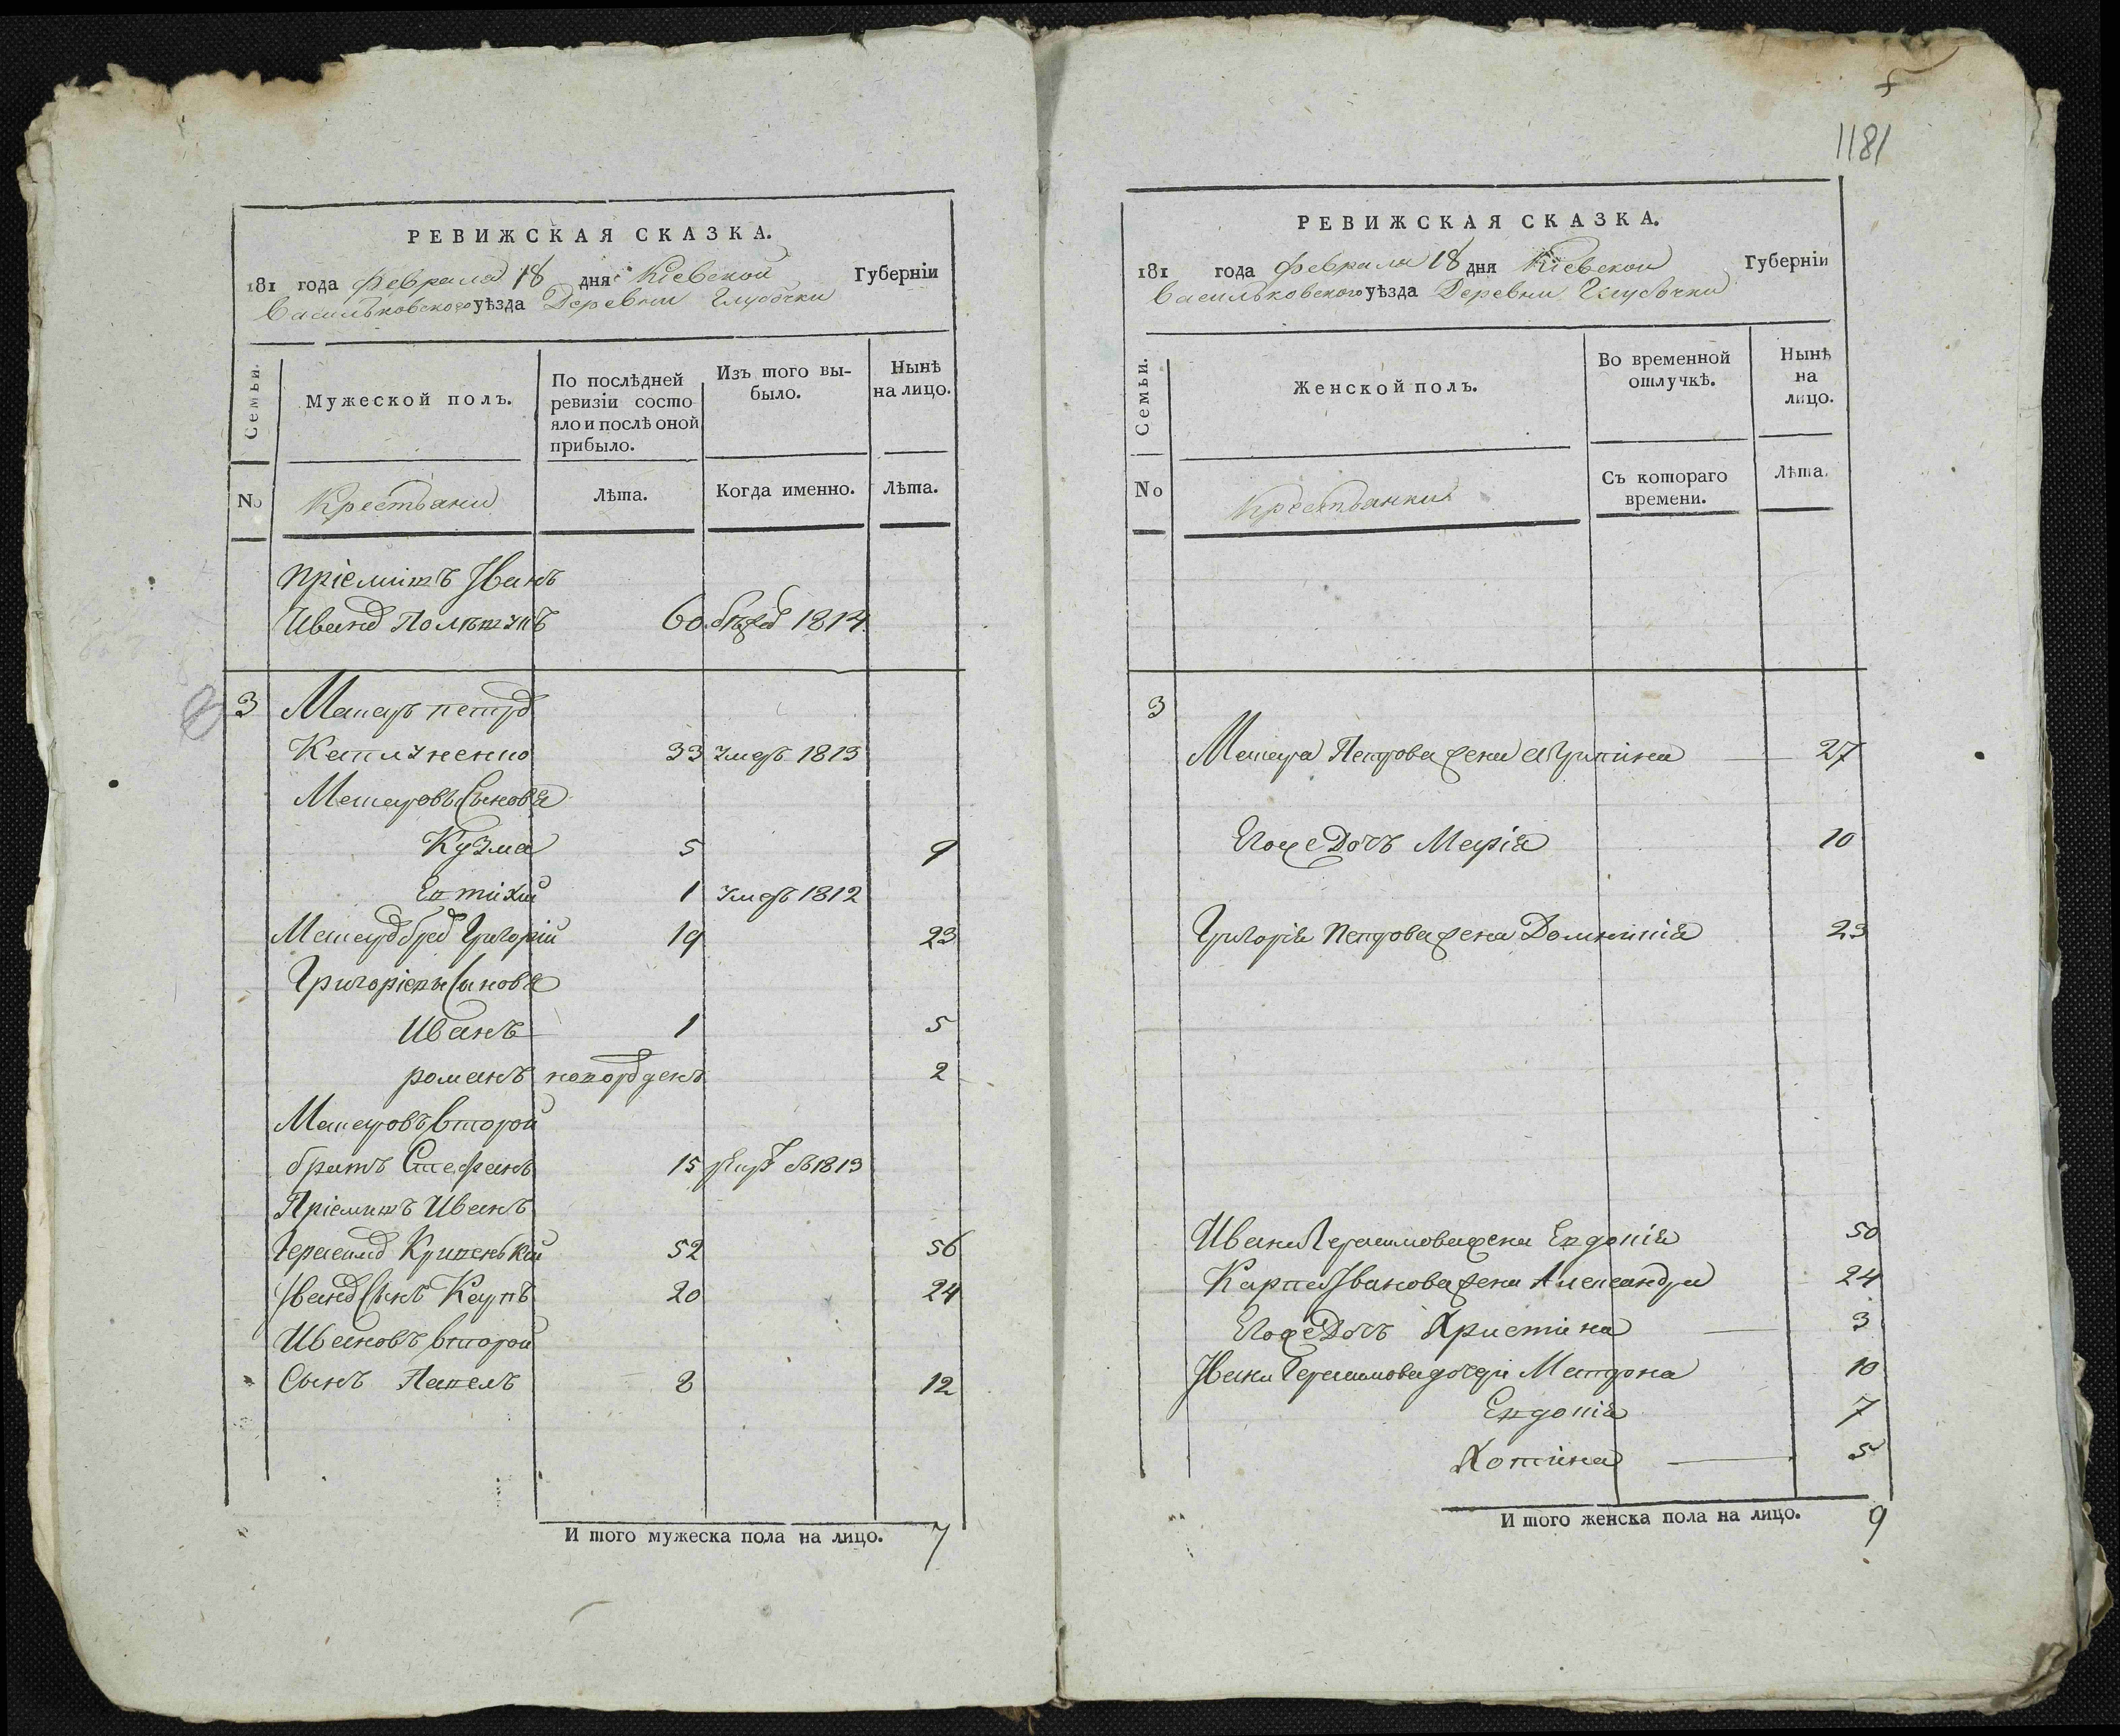 1181
РЕВИЖСКАЯ СКАЗКА.
181 года февраля 18 дня Кіевской Губерніи
Васильковского уѣзда Деревни Глубочки
Семьи.
Мужеской полъ.
По послѣдней ревизіи состояло и послѣ оной прибыло.
Изъ того выбыло.
Нынѣ на лицо.
No
Крестьяни
Лѣта.
Когда именно.
Лѣта.
пріемишъ Иванъ
Иванъ 60 1814
3 Макаръ петръ
33 умеръ 1813
Макаровъ Сыновя
Кузма 5 9
Евтихий 1 умеръ 1812
Макаръ братъ Григорій 19 23
Григоріевы Сыновя
Иванъ 1 5
романъ новорожденъ 2
Макаровъ второй
братъ Стефанъ 15 1813
Пріемишъ Иванъ
Герасимъ 52 56
Иванъ Сынъ Карпъ 20 24
Ивановъ второй
Сынъ Павелъ 8 12
И того мужеска пола на лицо. 7
РЕВИЖСКАЯ СКАЗКА.
181 года февраля 18 дня Кіевской Губерніи
Васильковского уѣзда Деревни Глубочки
Семьи.
Женской полъ.
Во временной отлучкѣ.
Нынѣ на лицо.
No
Крестьянки
Съ котораго времени.
Лѣта.
3
Макара Петрова жена Агрипина 27
Егоже Дочь Марія 10
Григорія Петрова жена Домникія 23
Ивана Герасимова жена Евдокія 50
Карпа Иванова жена Александра 24
Егоже Дочь Христина 3
Ивана Герасимова дочери Матрона 10
Евдокія 7
Хотина 5
И того женска пола на лицо. 9